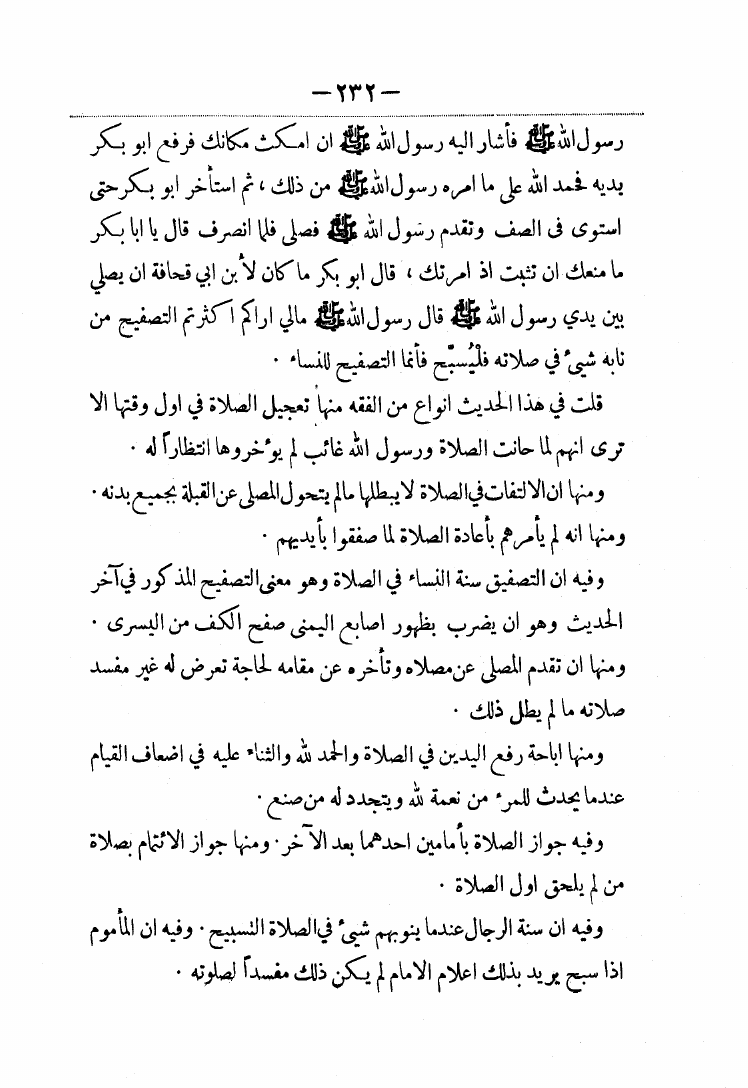 — ٢٣٢ —
رسول الله ﷺ فأشار اليه رسول الله ﷺ ان امكث مكانك فرفع ابو بكر
يديه فحمد الله على ما امره رسول الله ﷺ من ذلك ، ثم استأخر ابو بكر حتى
استوى فى الصف وتقدم رسول الله ﷺ فصلى فلما انصرف قال يا ابا بكر
ما منعك ان تثبت اذ امرتك ، قال ابو بكر ما كان لأ بن ابي قحافة ان يصلي
بين يدي رسول الله ﷺ قال رسول الله ﷺ مالي اراكم اكثرتم التصفيح من
نابه شيئ في صلاته فلْيُسبّح فأنما التصفيح للنساء .
قلت في هذا الحديث انواع من الفقه منها تعجيل الصلاة في اول وقتها الا
ترى انهم لما حانت الصلاة ورسول الله غائب لم يؤخروها انتظاراً له .
ومنها ان الالتفات في الصلاة لا يبطلها مالم يتحول المصلى عن القبلة بجميع بدنه .
ومنها انه لم يأمرهم بأعادة الصلاة لما صفقوا بأيديهم .
وفيه ان التصفيق سنة النساء في الصلاة وهو معنى التصفيح المذكور في آخر
الحديث وهو ان يضرب بظهور اصابع اليمنى صفح الكف من اليسرى .
ومنها ان تقدم المصلى عن مصلاه وتأخره عن مقامه لحاجة تعرض له غير مفسد
صلاته ما لم يطل ذلك .
ومنها اباحة رفع اليدين في الصلاة والحمد لله والثناء عليه في اضعاف القيام
عندما يحدث للمرء من نعمة لله ويتجدد له من صنع .
وفيه جواز الصلاة بأمامين احدهما بعد الآخر . ومنها جواز الائتمام بصلاة
من لم يلحق اول الصلاة .
وفيه ان سنة الرجال عندما ينوبهم شيئ في الصلاة التسبيح . وفيه ان المأموم
اذا سبح يريد بذلك اعلام الامام لم يكن ذلك مفسداً لصلوته .